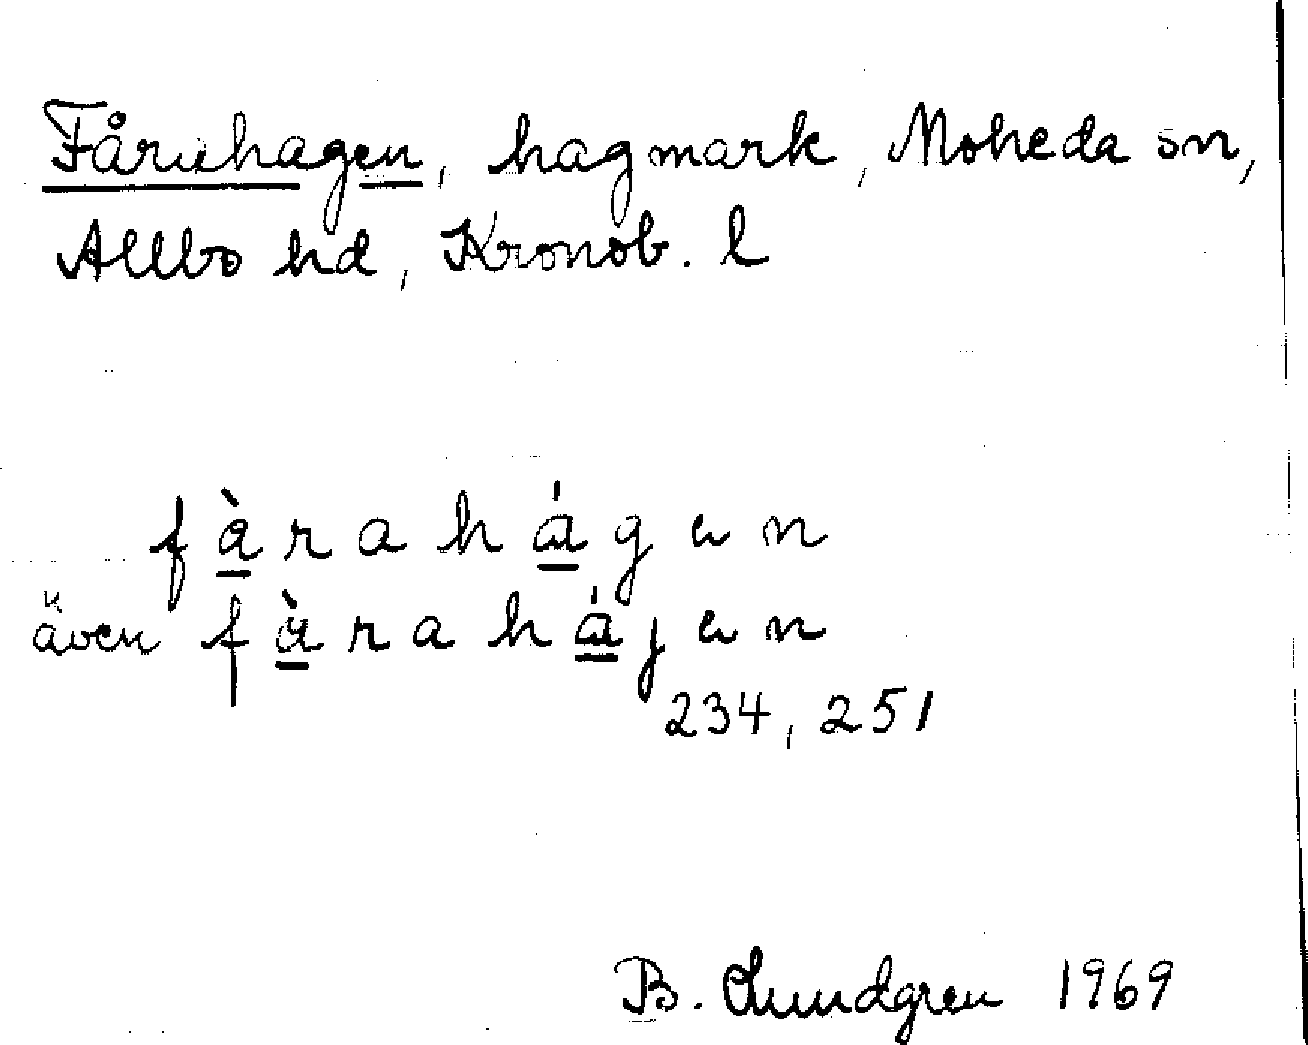 Fårahagen, hagmark, Moheda sn,
Allbo hd, Kronob. l
fàrahágen
även fàrahájen
234, 251
B. Lundgren 1969